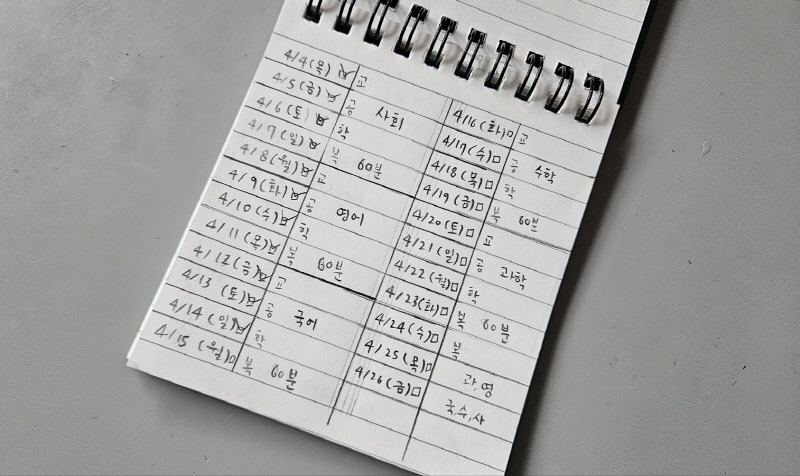 4/4(목) ☑ 고
4/5(금) ☑ 공 사회
4/6(토) ☑ 학
4/7(일) ☑ 복 60분
4/8(월) ☑ 고
4/9(화) ☑ 공 영어
4/10(수) ☑ 학
4/11(목) ☑ 복 60분
4/12(금) ☑ 고
4/13(토) ☑ 공 국어
4/14(일) ☑ 학
4/15(월) □ 복 60분
4/16(화) □ 고
4/17(수) □ 공 수학
4/18(목) □ 학
4/19(금) □ 복 60분
4/20(토) □ 고
4/21(일) □ 공 과학
4/22(월) □ 학
4/23(화) □ 복 60분
4/24(수) □ 복
4/25(목) □ 과,영
4/26(금) □ 국,수,사